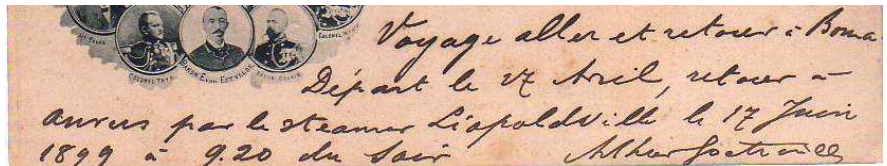 COLONEL THYS
BARON EVON EETVELDE
Voyage aller et retour à Boma
Départ le 27 Avril, retour à
Anvers par le steamer Léopoldville le 17 Juin
1899 à 9.20 du soir